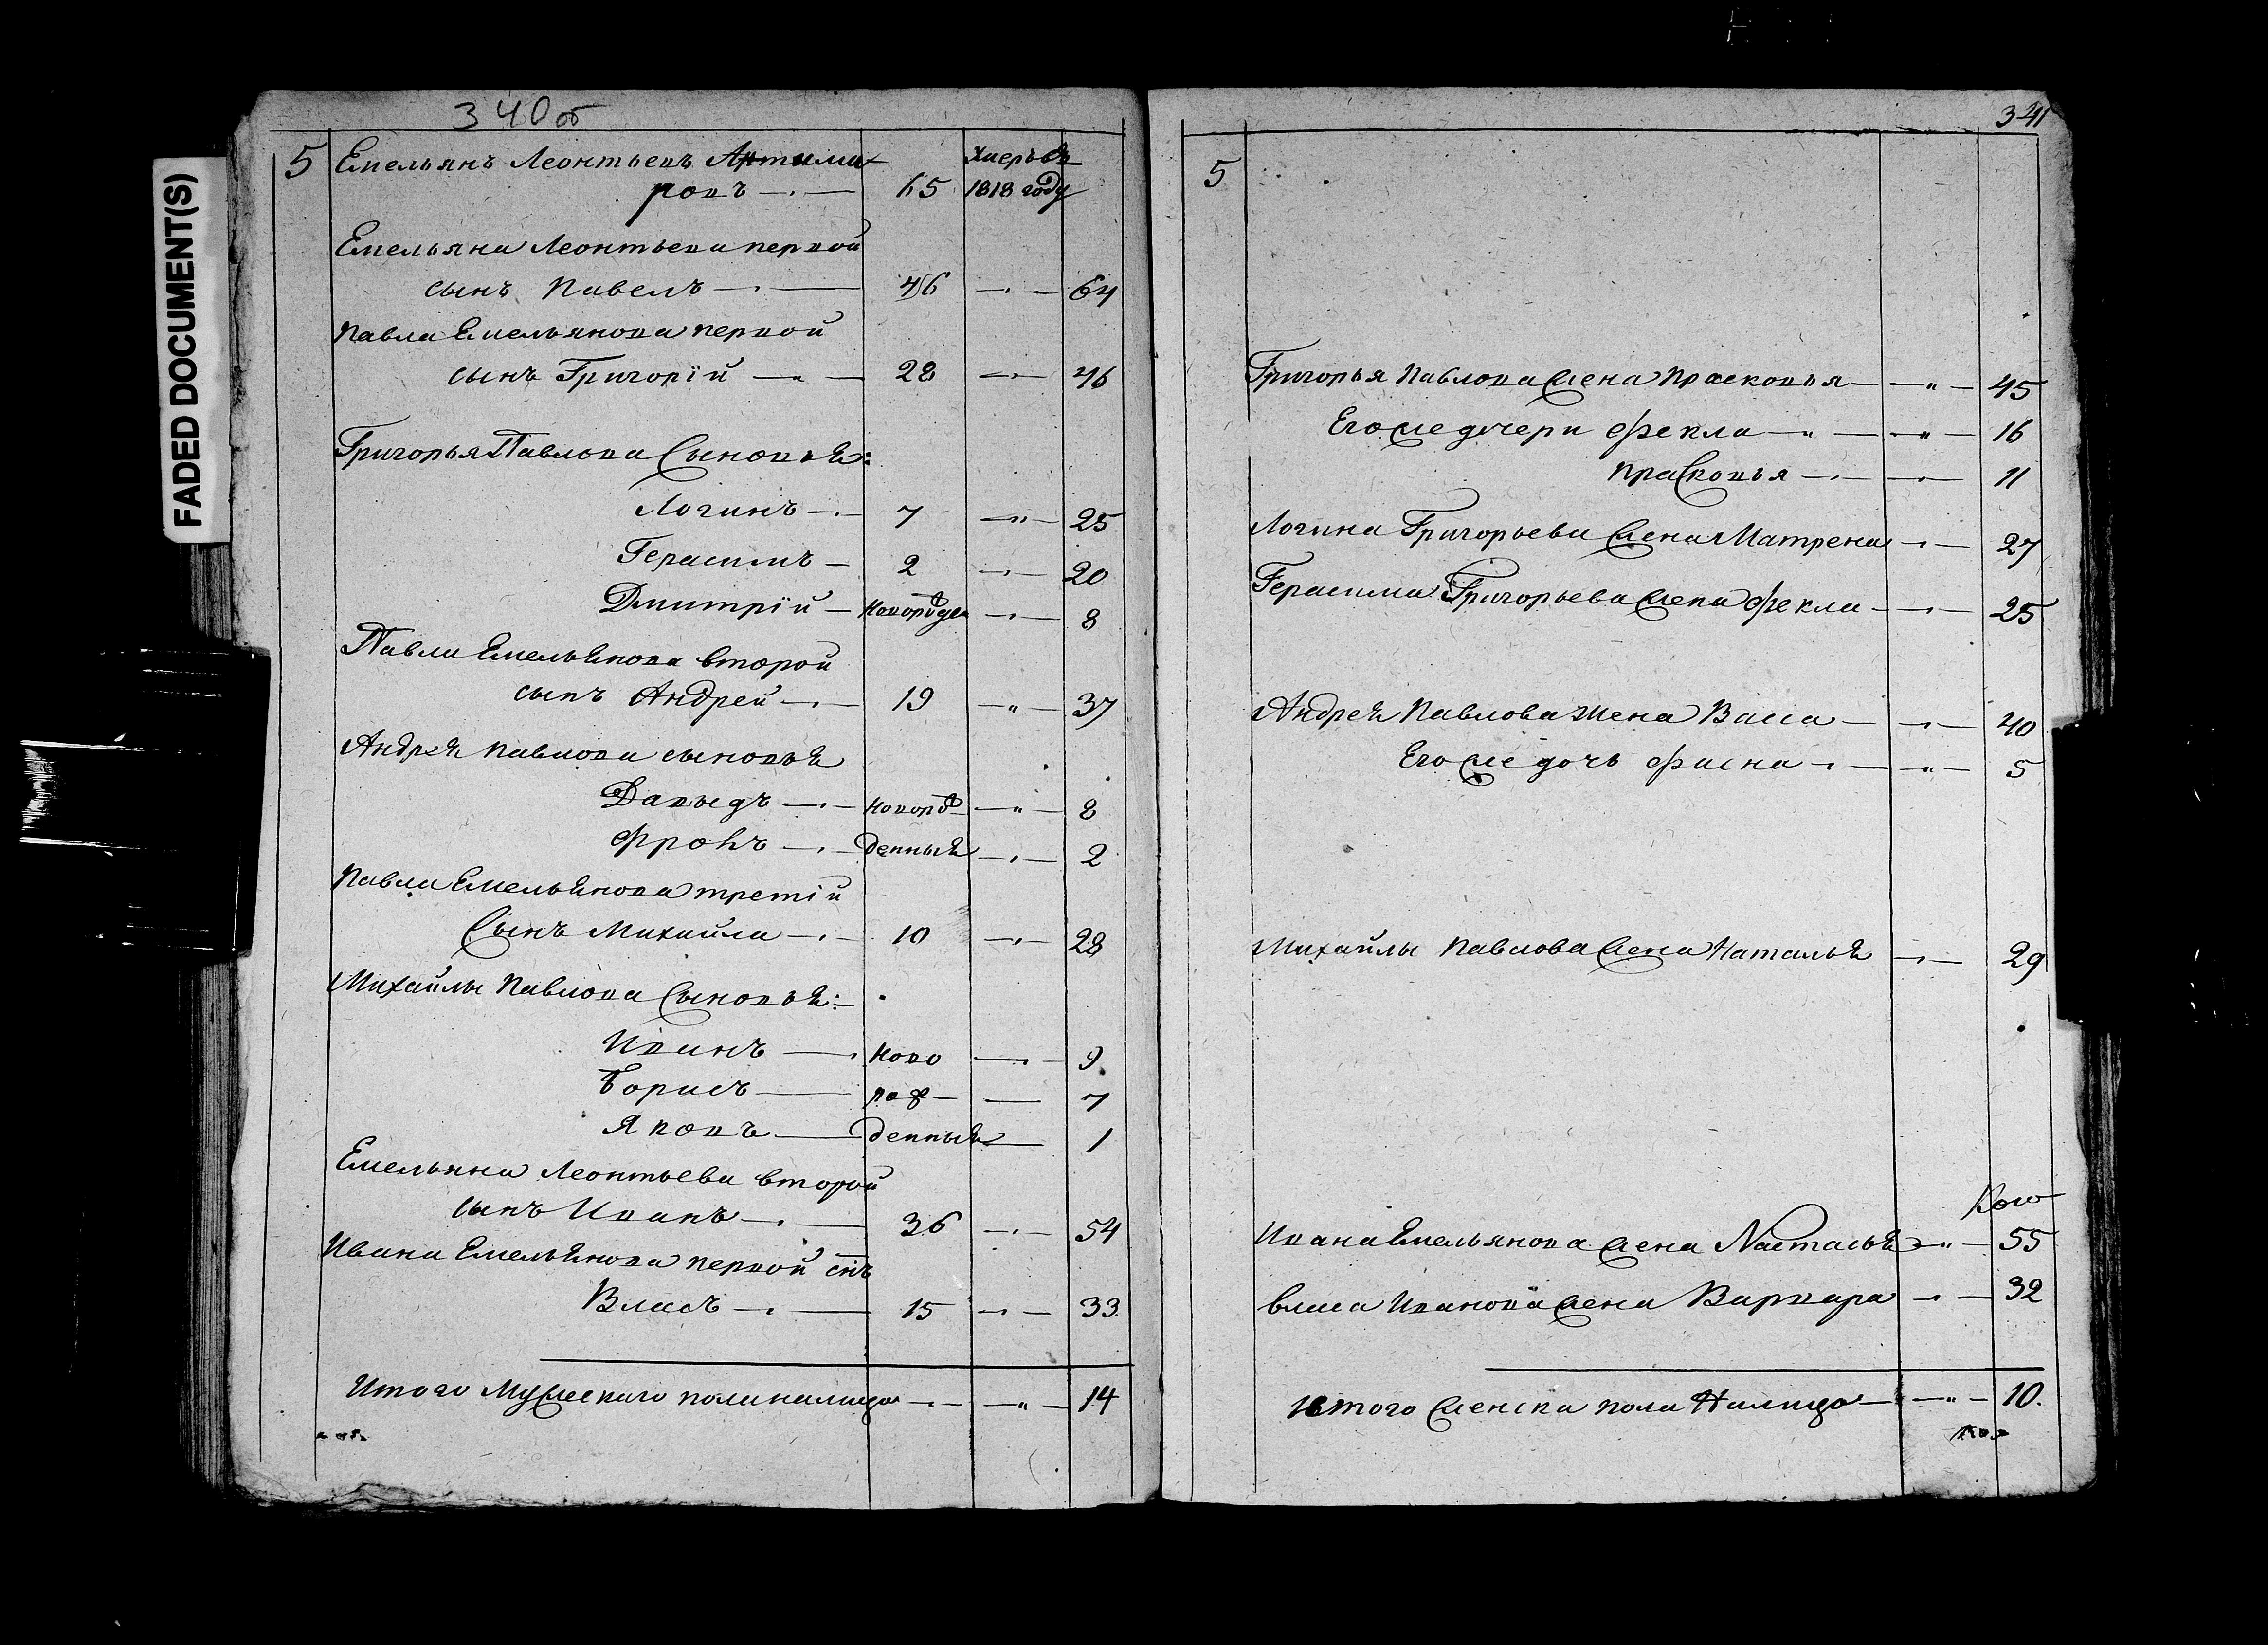 FADED DOCUMENT(S)
340 об
5 Емельянъ Леонтьевъ Артима
ровъ 65 Умеръ въ 1818 году
Емельяна Леонтьева первой
сынъ Павелъ 46 64
Павла Емельянова первой
сынъ Григорій 28 46
Григорья Павлова Сыновья:
Логинъ 7 25
Герасимъ 2 20
Дмитрій 8
Павла Емельянова второй
сынъ Андрей 19 37
Андрея Павлова сыновья
Давыдъ новорож 8
Фролъ денныя 2
Павла Емельянова третій
Сынъ Михайла 10 28
Михайлы Павлова Сыновья:
Иванъ ново 9
Борисъ рож 7
Яковъ денныя 1
Емельяна Леонтьева второй
сынъ Иванъ 36 54
Ивана Емельянова первой снъ
Власъ 15 33
Итого Мужескаго пола налицо 14
341
5
Григорья Павлова жена Прасковья 45
Его же дочери Фекла 16
Прасковья 11
Логина Григорьева жена Матрена 27
Герасима Григорьева жена Фекла 25
Андрея Павлова жена Васса 40
Его же дочь Фаина 5
Михайлы Павлова жена Наталья 29
Ивана Емельянова жена Настасья 55
Власа Иванова жена Варвара 32
Итого женска пола Налицо 10.